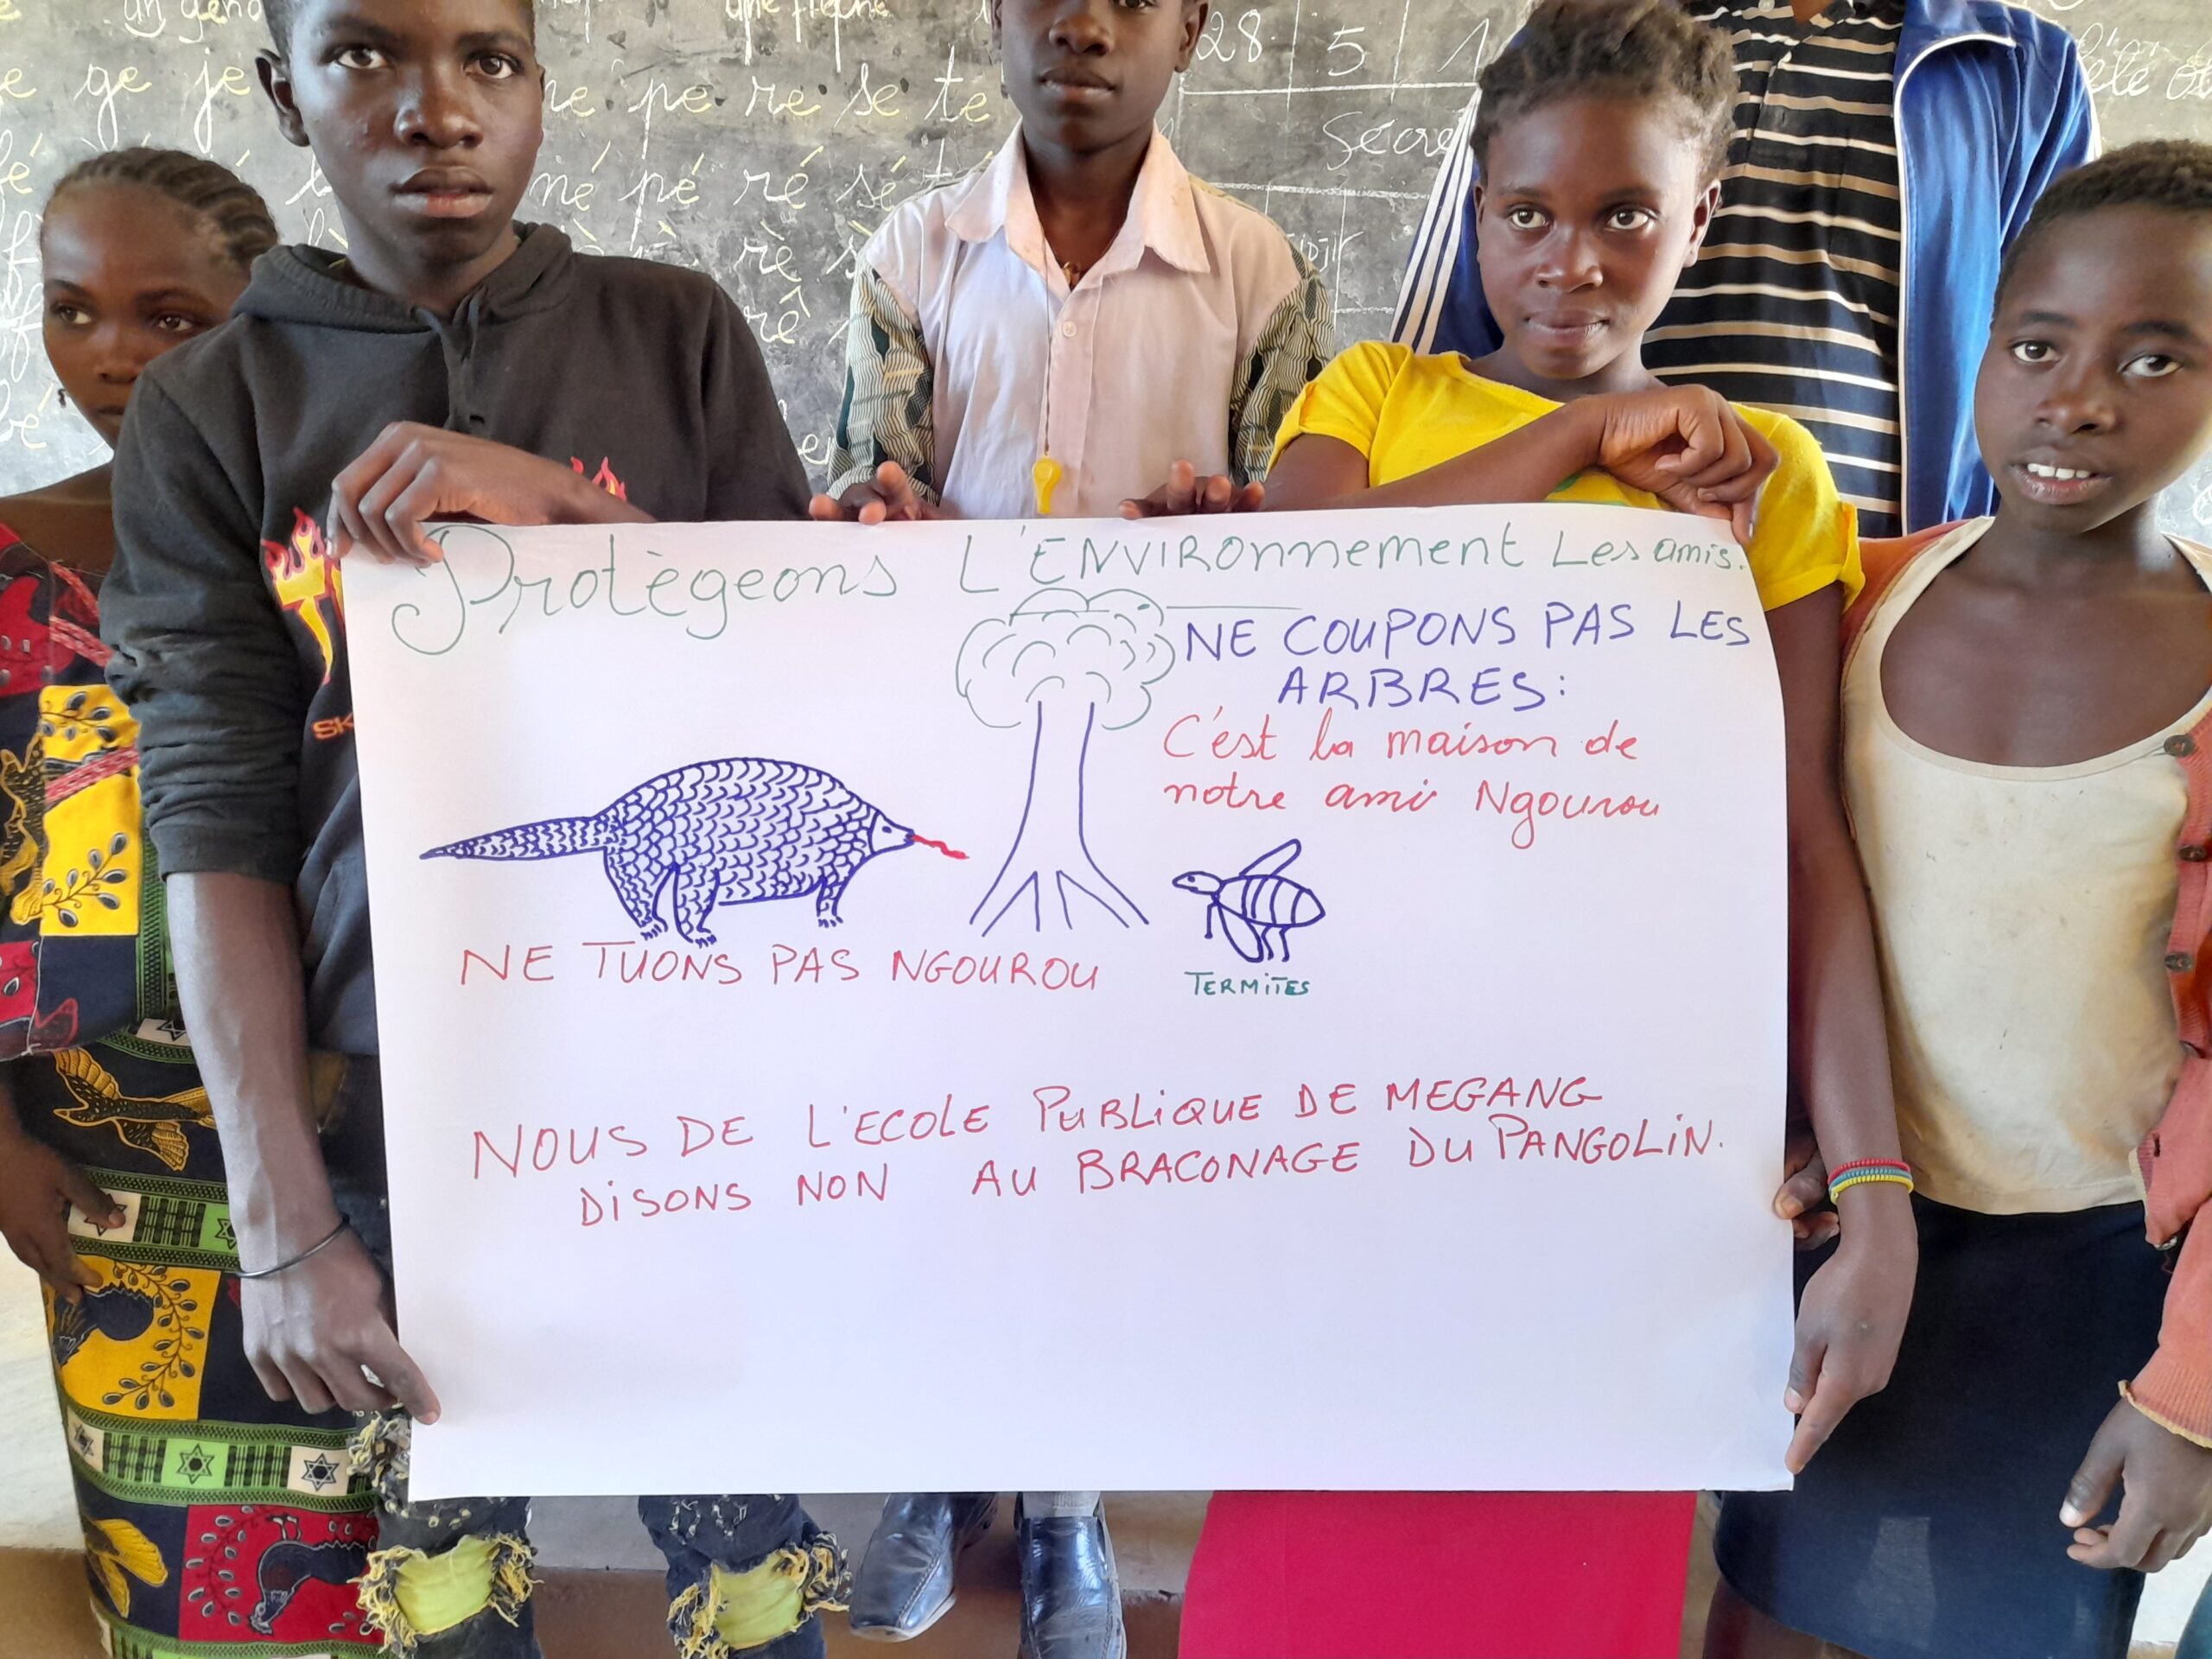 ge je pe re se te
né pé ré sé té
rè
rê
28 5 1
Protègeons L'ENVIRonnement Les amis.
NE COUPONS PAS LES
ARBRES:
C'est la maison de
notre ami Ngourou
NE TUONS PAS NGOUROU
TERMITES
NOUS DE L'ECOLE PUBLIQUE DE MEGANG
DISONS NON AU BRACONAGE DU PANGOLIN.